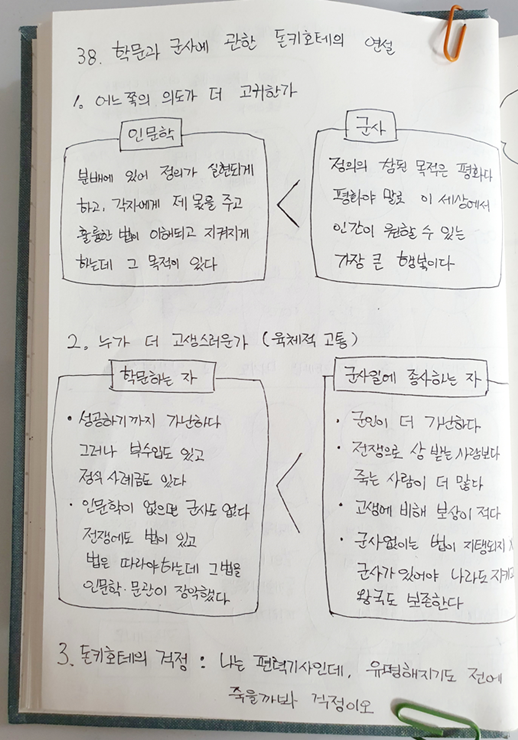 38. 학문과 군사에 관한 돈키호테의 연설
1. 어느쪽의 의도가 더 고귀한가
인문학
분배에 있어 정의가 실현되게
하고, 각자에게 제 몫을 주고
훌륭한 법이 이해되고 지켜지게
하는데 그 목적이 있다
<
군사
정의의 참된 목적은 평화다
평화야 말로 이 세상에서
인간이 원할 수 있는
가장 큰 행복이다
2. 누가 더 고생스러운가 (육체적 고통)
학문하는 자
• 성공하기까지 가난하다
그러나 부수입도 있고
정의 사례금도 있다
• 인문학이 없으면 군사도 없다
전쟁에도 법이 있고
법은 따라야 하는데 그 법을
인문학·문관이 장악했다
<
군사일에 종사하는 자
• 군인이 더 가난하다
• 전쟁으로 상 받는 사람보다
죽는 사람이 더 많다
• 고생에 비해 보상이 적다
• 군사없이는 법이 지탱되지
군사가 있어야 나라도 지키고
왕국도 보존한다
3. 돈키호테의 걱정 : 나는 편력기사인데, 유명해지기도 전에
죽을까봐 걱정이오